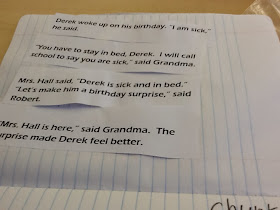 Derek woke up on his birthday. "I am sick,"
he said.
"You have to stay in bed, Derek. I will call
school to say you are sick," said Grandma.
Mrs. Hall said, "Derek is sick and in bed."
"Let's make him a birthday surprise," said
Robert.
"Mrs. Hall is here," said Grandma. The
surprise made Derek feel better.